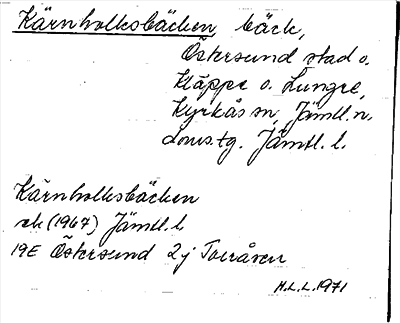 Kärnholksbäcken, bäck,
Östersund stad o.
Kläppe o. Lungre,
Kyrkås sn, Jämtl. n.
doms.tg. Jämtl. l.
Kärnholksbäcken
ek (1967) Jämtl. l.
19E Östersund 2j Torråsen
H.L.L. 1971